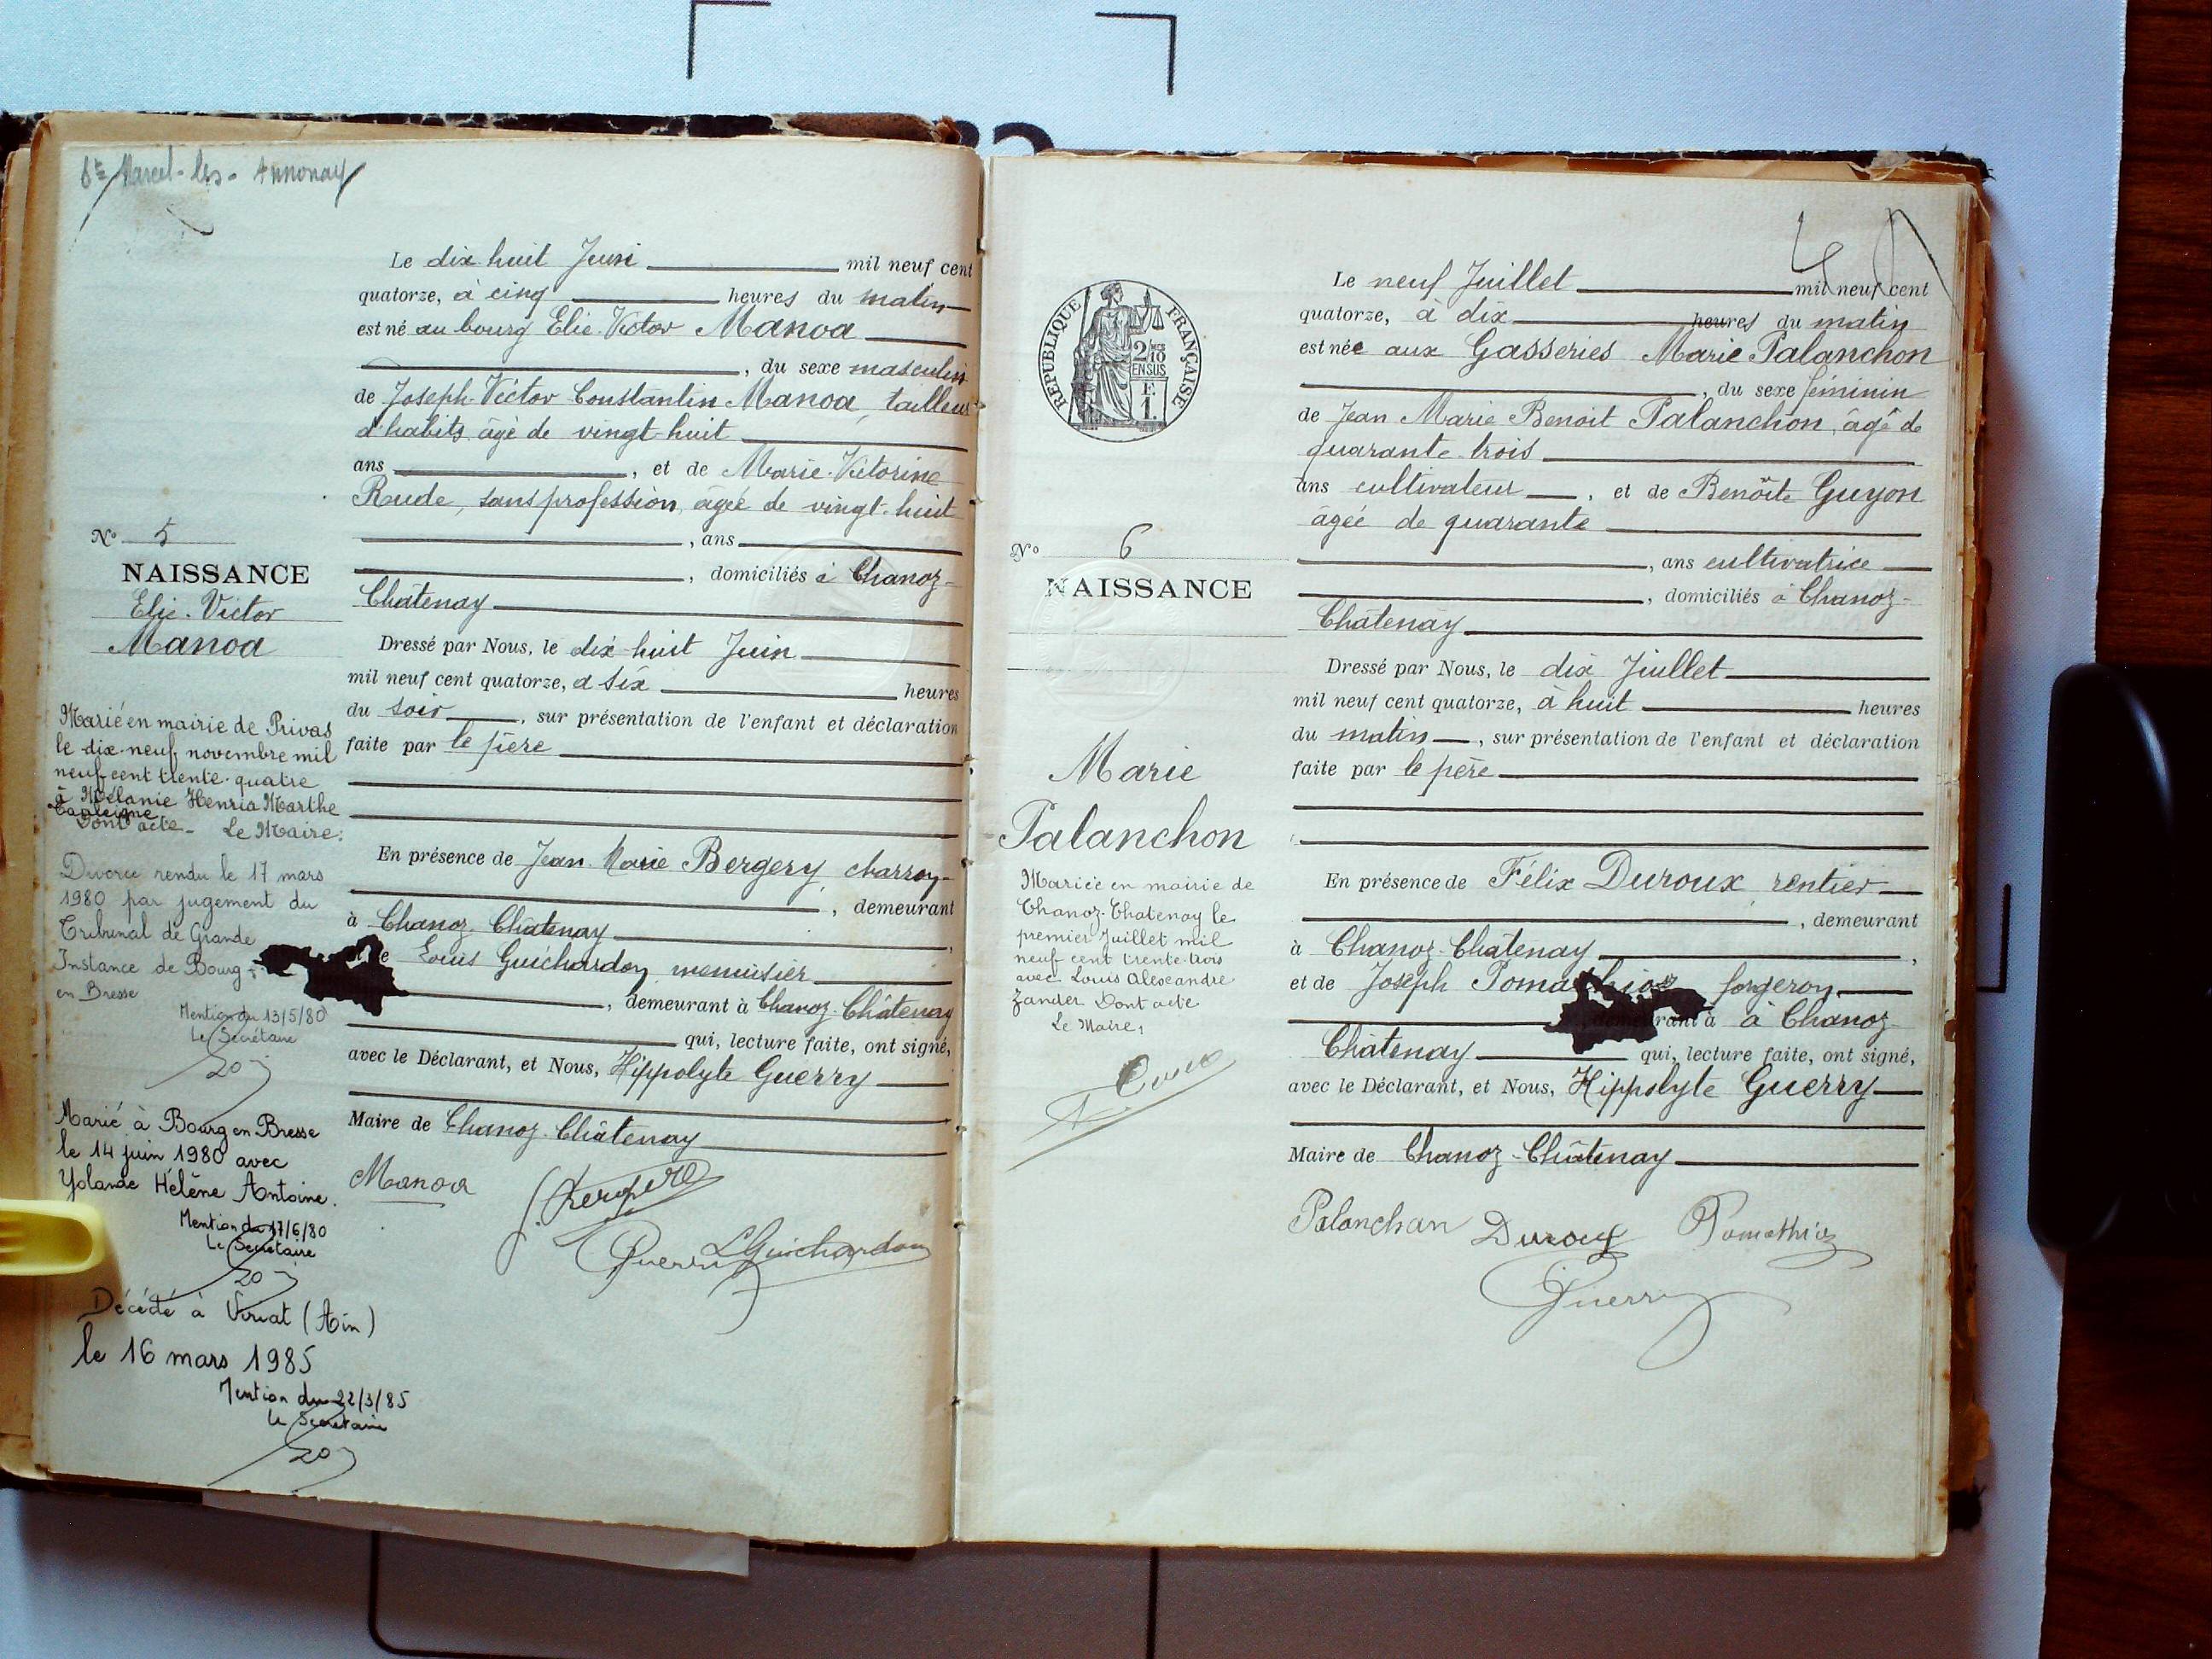 Marcel-les-Annonay
Le dix huit Juin mil neuf cent
quatorze, à cinq heures du matin
est né au bourg Elie-Victor Manoa
, du sexe masculin
de Joseph-Victor Constantin Manoa, tailleur
d'habits âgé de vingt-huit
ans , et de Marie-Victorine
Rude, sans profession, âgée de vingt-huit
, ans
, domiciliés à Chanoz-
Châtenay
Dressé par Nous, le dix-huit Juin
mil neuf cent quatorze, à six heures
du soir , sur présentation de l'enfant et déclaration
faite par le père
En présence de Jean Marie Bergery, charron
, demeurant
à Chanoz-Châtenay ,
de Louis Guichardon, menuisier
, demeurant à Chanoz-Châtenay
qui, lecture faite, ont signé,
avec le Déclarant, et Nous, Hippolyte Guerry
Maire de Chanoz-Châtenay
Manoa
Guerry LGuichardon
No 5
NAISSANCE
Elie-Victor
Manoa
Marié en mairie de Privas
le dix-neuf novembre mil
neuf cent trente-quatre
à Mélanie Henria Marthe
Dont acte - Le Maire:
Divorce rendu le 17 mars
1980 par jugement du
Tribunal de Grande
Instance de Bourg-
en Bresse
Mention du 13/5/80
Le Secrétaire
Marié à Bourg en Bresse
le 14 juin 1980 avec
Yolande Hélène Antoine.
Mention du 17/6/80
Le Secrétaire
Décédé à Viriat (Ain)
le 16 mars 1985
Mention du 22/3/85
Le Secrétaire
RÉPUBLIQUE FRANÇAISE
2/10 MES
EN SUS
F.
1.
Le neuf Juillet mil neuf cent
quatorze, à dix heures du matin
est née aux Gasseries Marie Palanchon
, du sexe féminin
de Jean Marie Benoit Palanchon, âgé de
quarante-trois
ans cultivateur , et de Benoîte Guyon
âgée de quarante
, ans cultivatrice
, domiciliés à Chanoz-
Châtenay
Dressé par Nous, le dix Juillet
mil neuf cent quatorze, à huit heures
du matin , sur présentation de l'enfant et déclaration
faite par le père
En présence de Félix Duroux rentier
, demeurant
à Chanoz-Châtenay ,
et de Joseph Pomathioz forgeron
demeurant à à Chanoz-
Châtenay qui, lecture faite, ont signé,
avec le Déclarant, et Nous, Hippolyte Guerry
Maire de Chanoz-Châtenay
Palanchon Duroux Pomathioz
Guerry
No 6
NAISSANCE
Marie
Palanchon
Mariée en mairie de
Chanoz-Chatenay le
premier Juillet mil
neuf cent trente-trois
avec Louis Alexandre
Zander Dont acte
Le Maire,